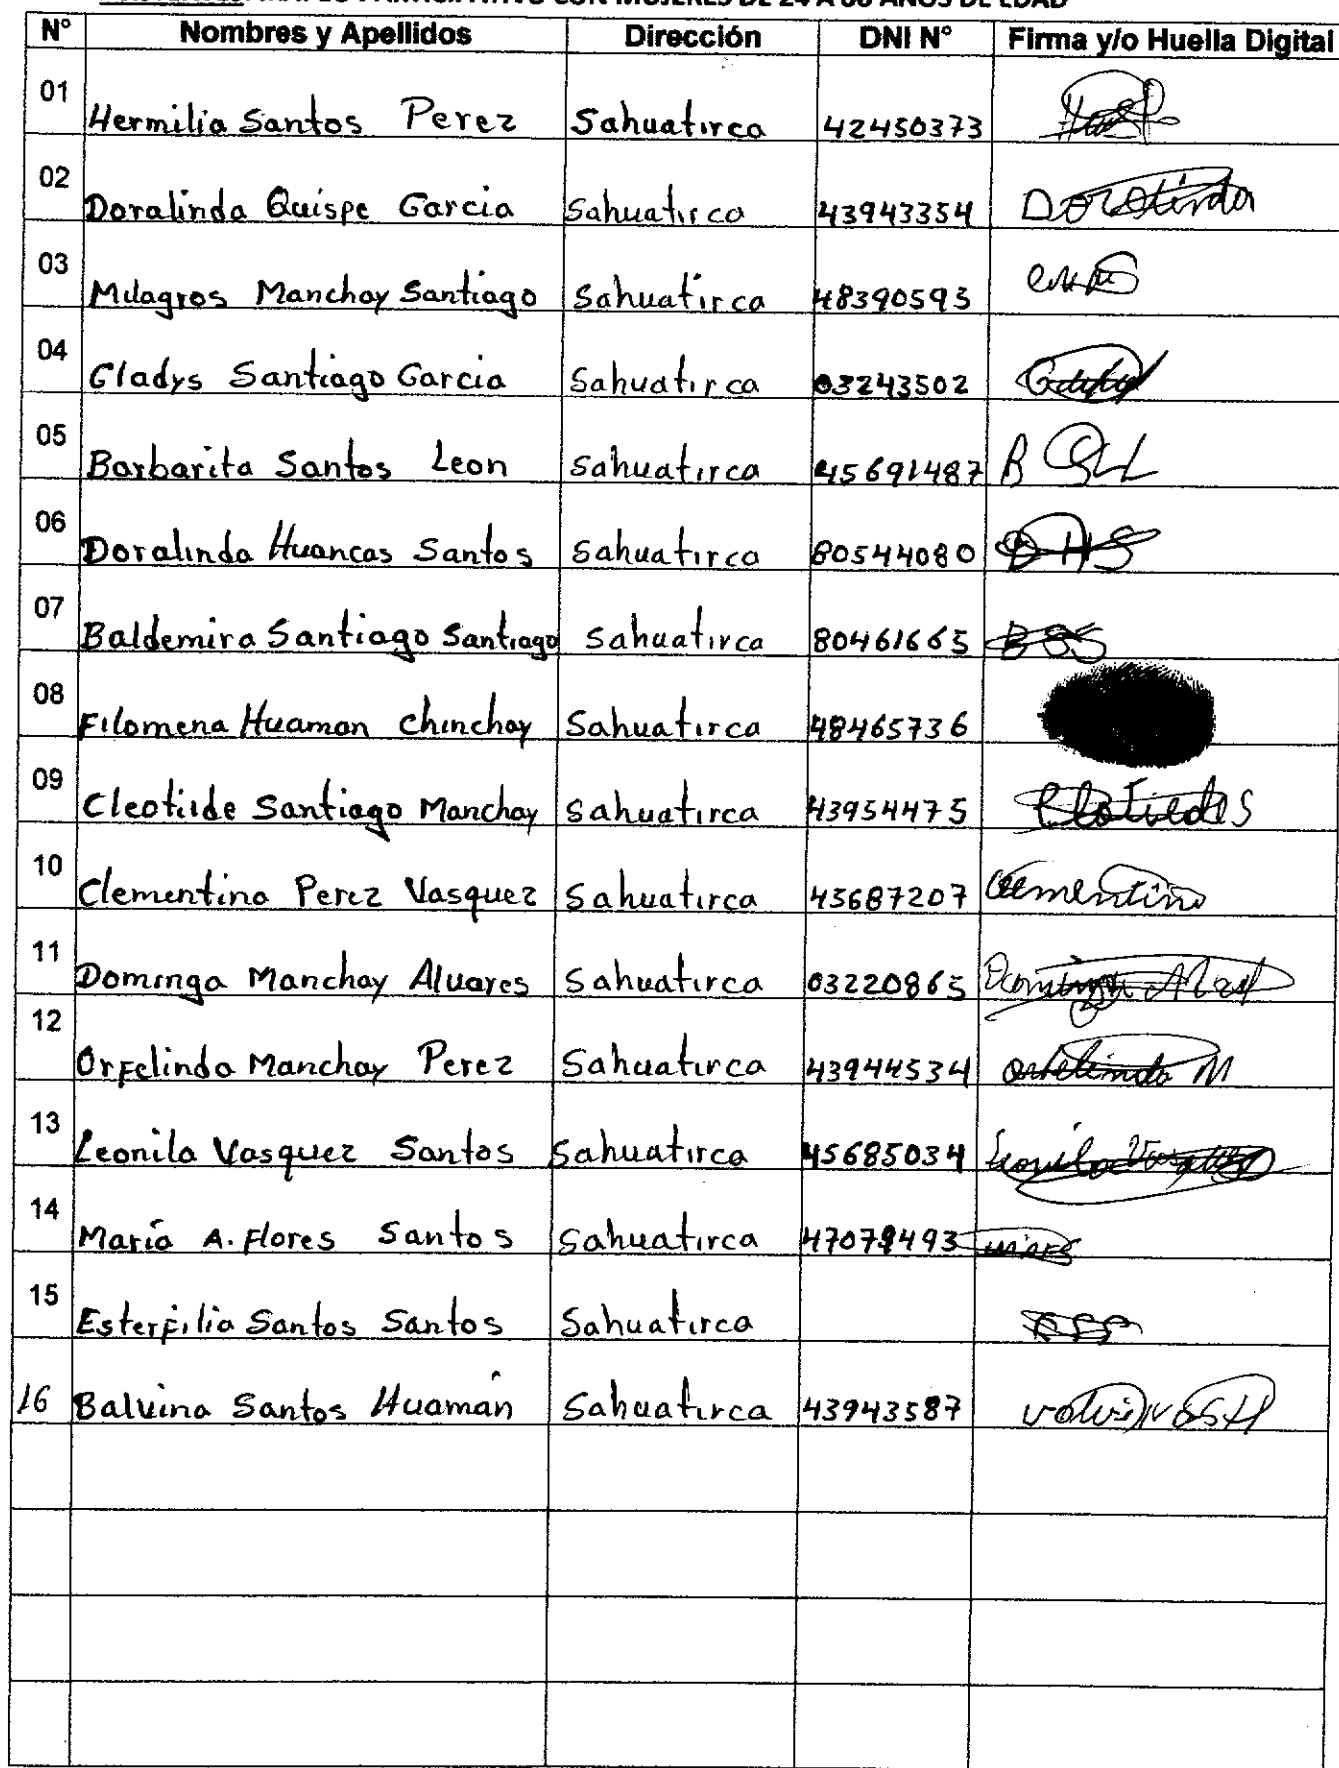 PARTICIPATIVO CON MUJERES DE 24 A 60 AÑOS DE EDAD
N° Nombres y Apellidos Dirección DNI N° Firma y/o Huella Digital
01 Hermilia Santos Perez Sahuatirca 42450373
02 Doralinda Quispe Garcia Sahuatirca 43943354 Doralinda
03 Milagros Manchay Santiago Sahuatirca 48390593
04 Gladys Santiago Garcia Sahuatirca 03243502
05 Barbarita Santos Leon Sahuatirca 45691487
06 Doralinda Huancas Santos Sahuatirca 80544080 DHS
07 Baldemira Santiago Santiago Sahuatirca 80461665 BSS
08 Filomena Huaman Chinchay Sahuatirca 48465736
09 Cleotilde Santiago Manchay Sahuatirca 43954475
10 Clementina Perez Vasquez Sahuatirca 45687207 Clementina
11 Dominga Manchay Alvares Sahuatirca 03220865 Dominga
12 Orfelinda Manchay Perez Sahuatirca 43944534 orfelinda M
13 Leonila Vasquez Santos Sahuatirca 45685034 Leonila
14 María A. Flores Santos Sahuatirca 47079493
15 Esterfilia Santos Santos Sahuatirca
16 Balvina Santos Huamán Sahuatirca 43943587